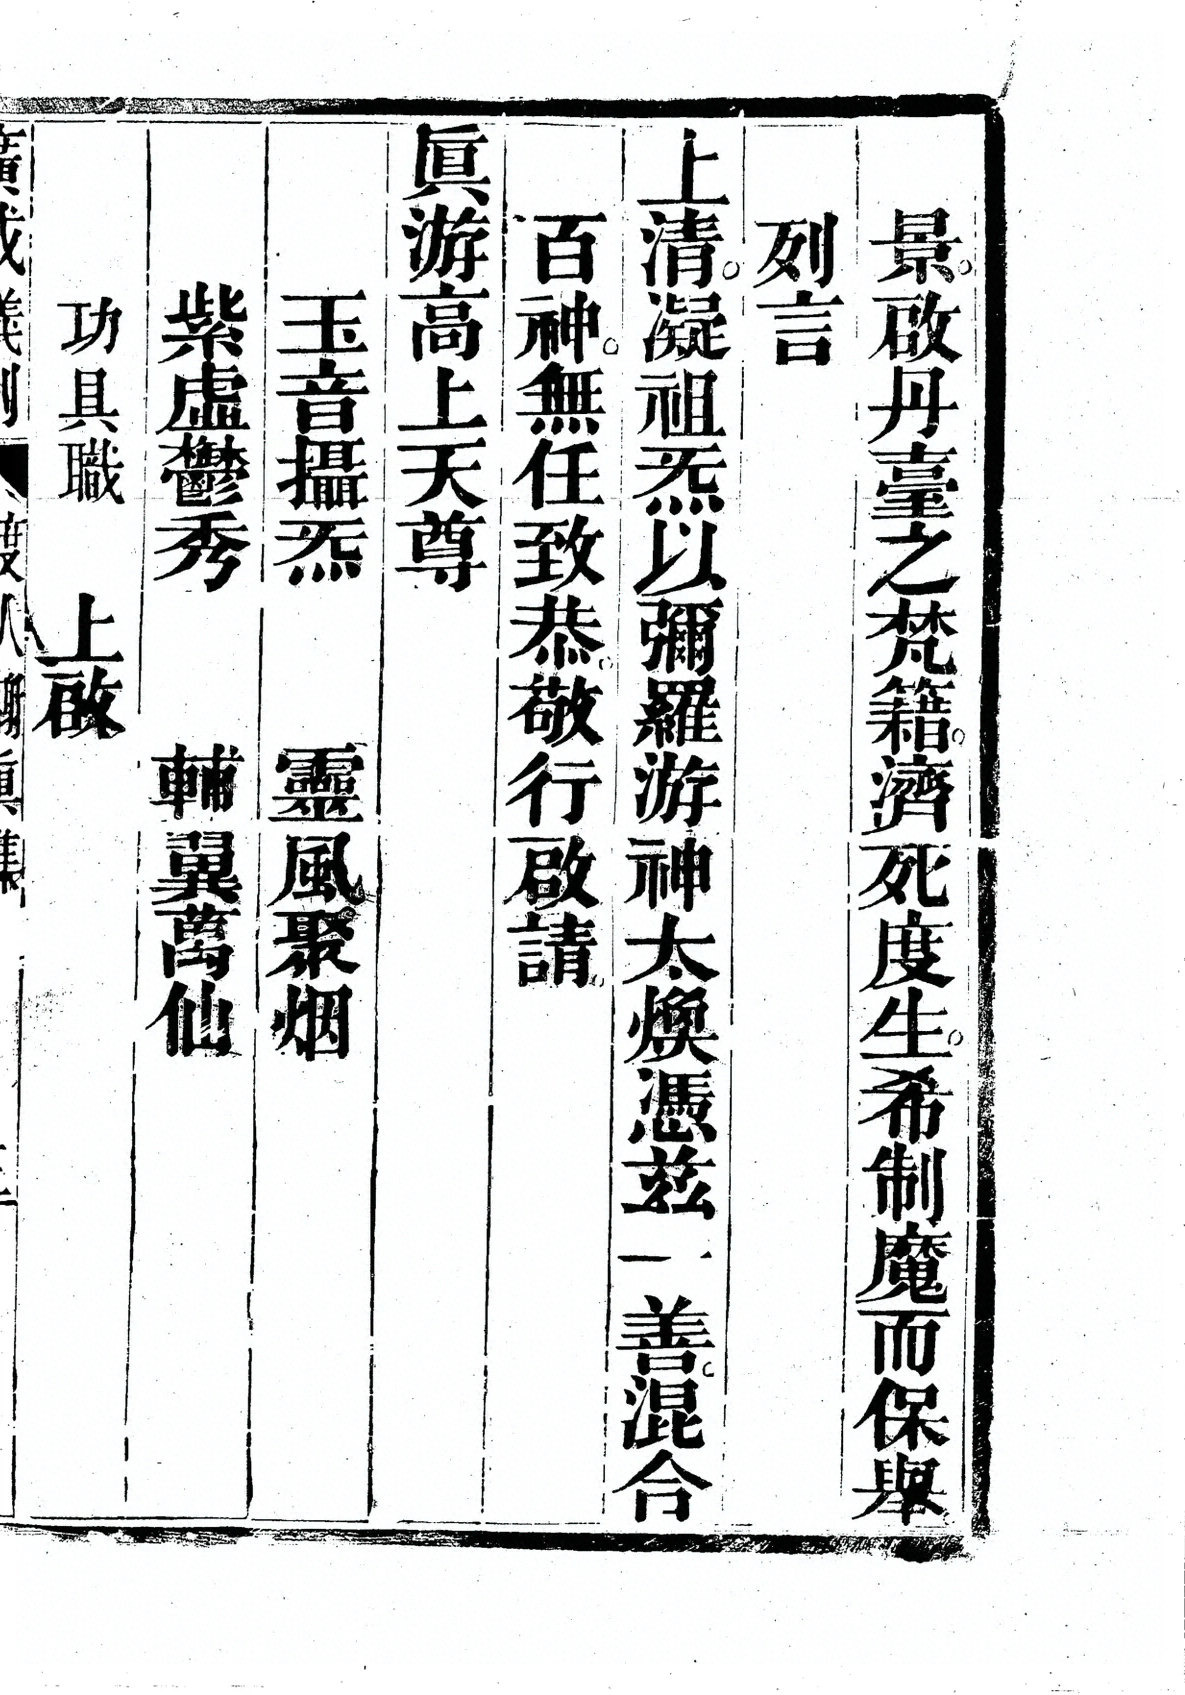 景。啟丹臺之梵籍。濟死度生。希制魔而保舉
列言
上清。凝祖炁以彌羅游神太煥憑茲一善。混合
百神。無任致恭。敬行啟請。
眞游高上天尊
玉音攝炁 靈風聚烟
紫虛鬱秀 輔翼萬仙
功具職 上啟
廣成儀制 度人朝眞集